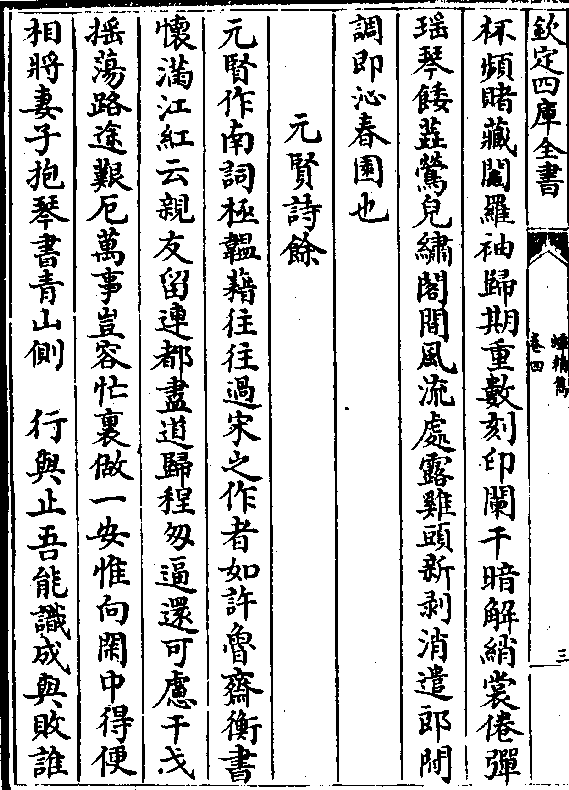 欽定四庫全書
蟫精雋
卷四
三
杯頻賭藏鬮羅袖歸期重數刻印闌干暗解綃裳倦彈
瑶琴餧葢鶯兒繡閣間風流處露雞頭新剥消遣郎閒
調即沁春園也
元賢詩餘
元賢作南詞極韞藉往往過宋之作者如許魯齋衡書
懷滿江紅云親友留連都盡道歸程匆逼還可慮干戈
揺蕩路途艱厄萬事豈容忙裏做一安惟向閑中得便
相將妻子抱琴書青山側 行與止吾能識成與敗誰